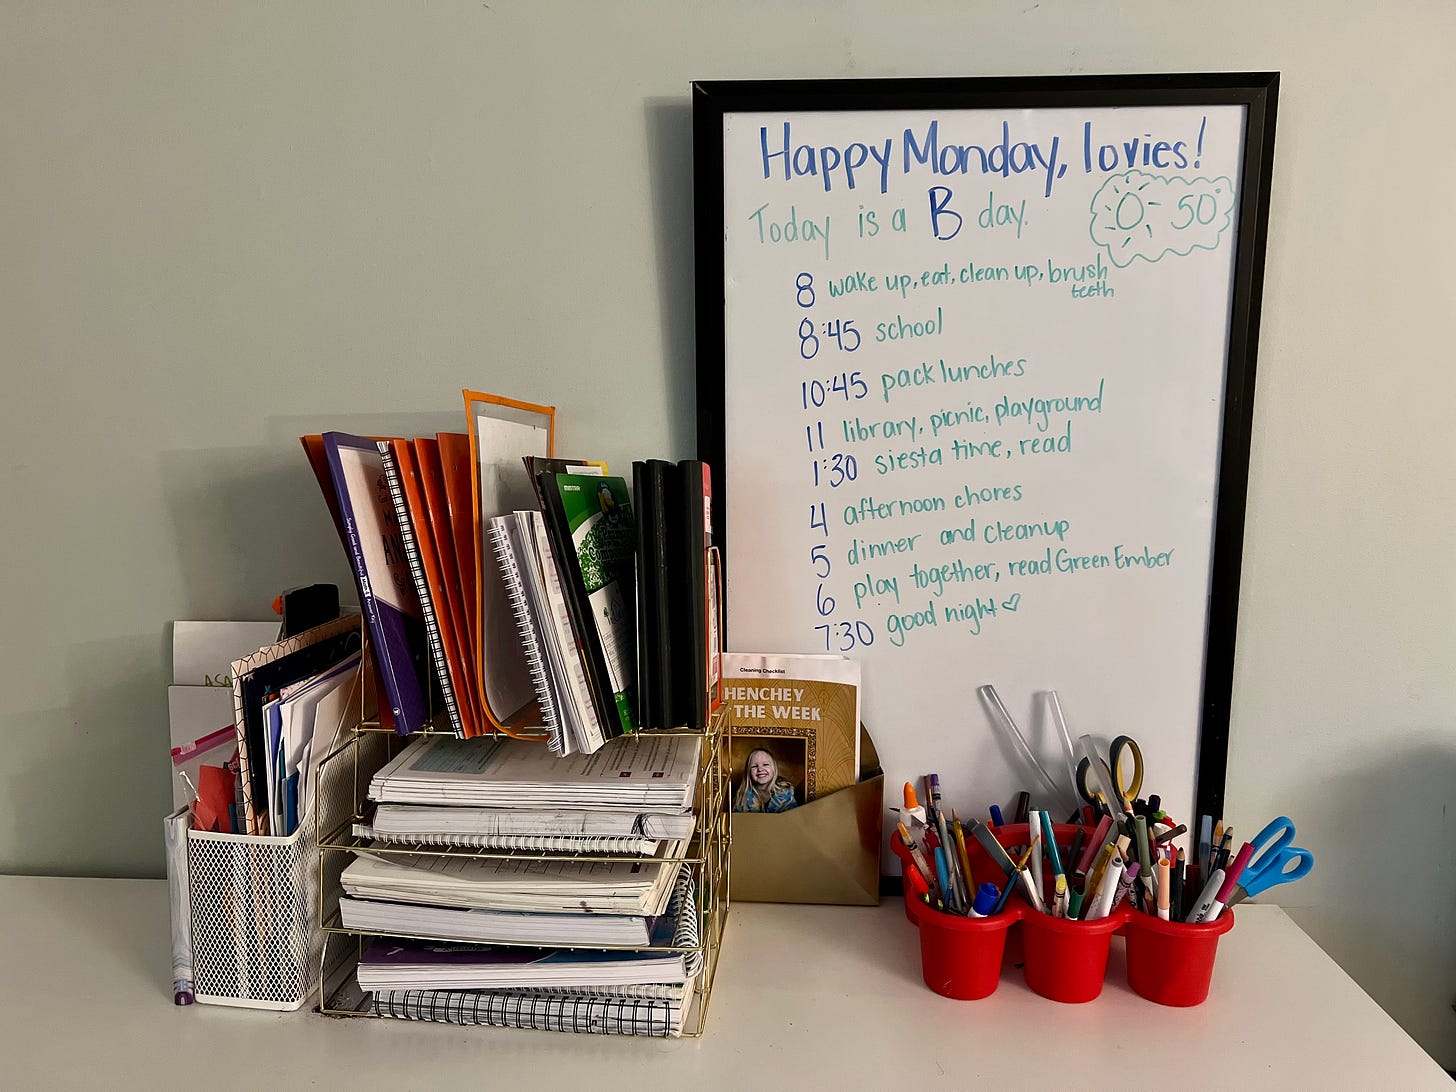 Happy Monday, lovies!
Today is a B day.
50°
8 wake up, eat, clean up, brush
teeth
8:45 school
10:45 pack lunches
11 library, picnic, playground
1:30 siesta time, read
4 afternoon chores
5 dinner and cleanup
6 play together, read Green Ember
7:30 good night ♡
Cleaning Checklist
HENCHEY
THE WEEK